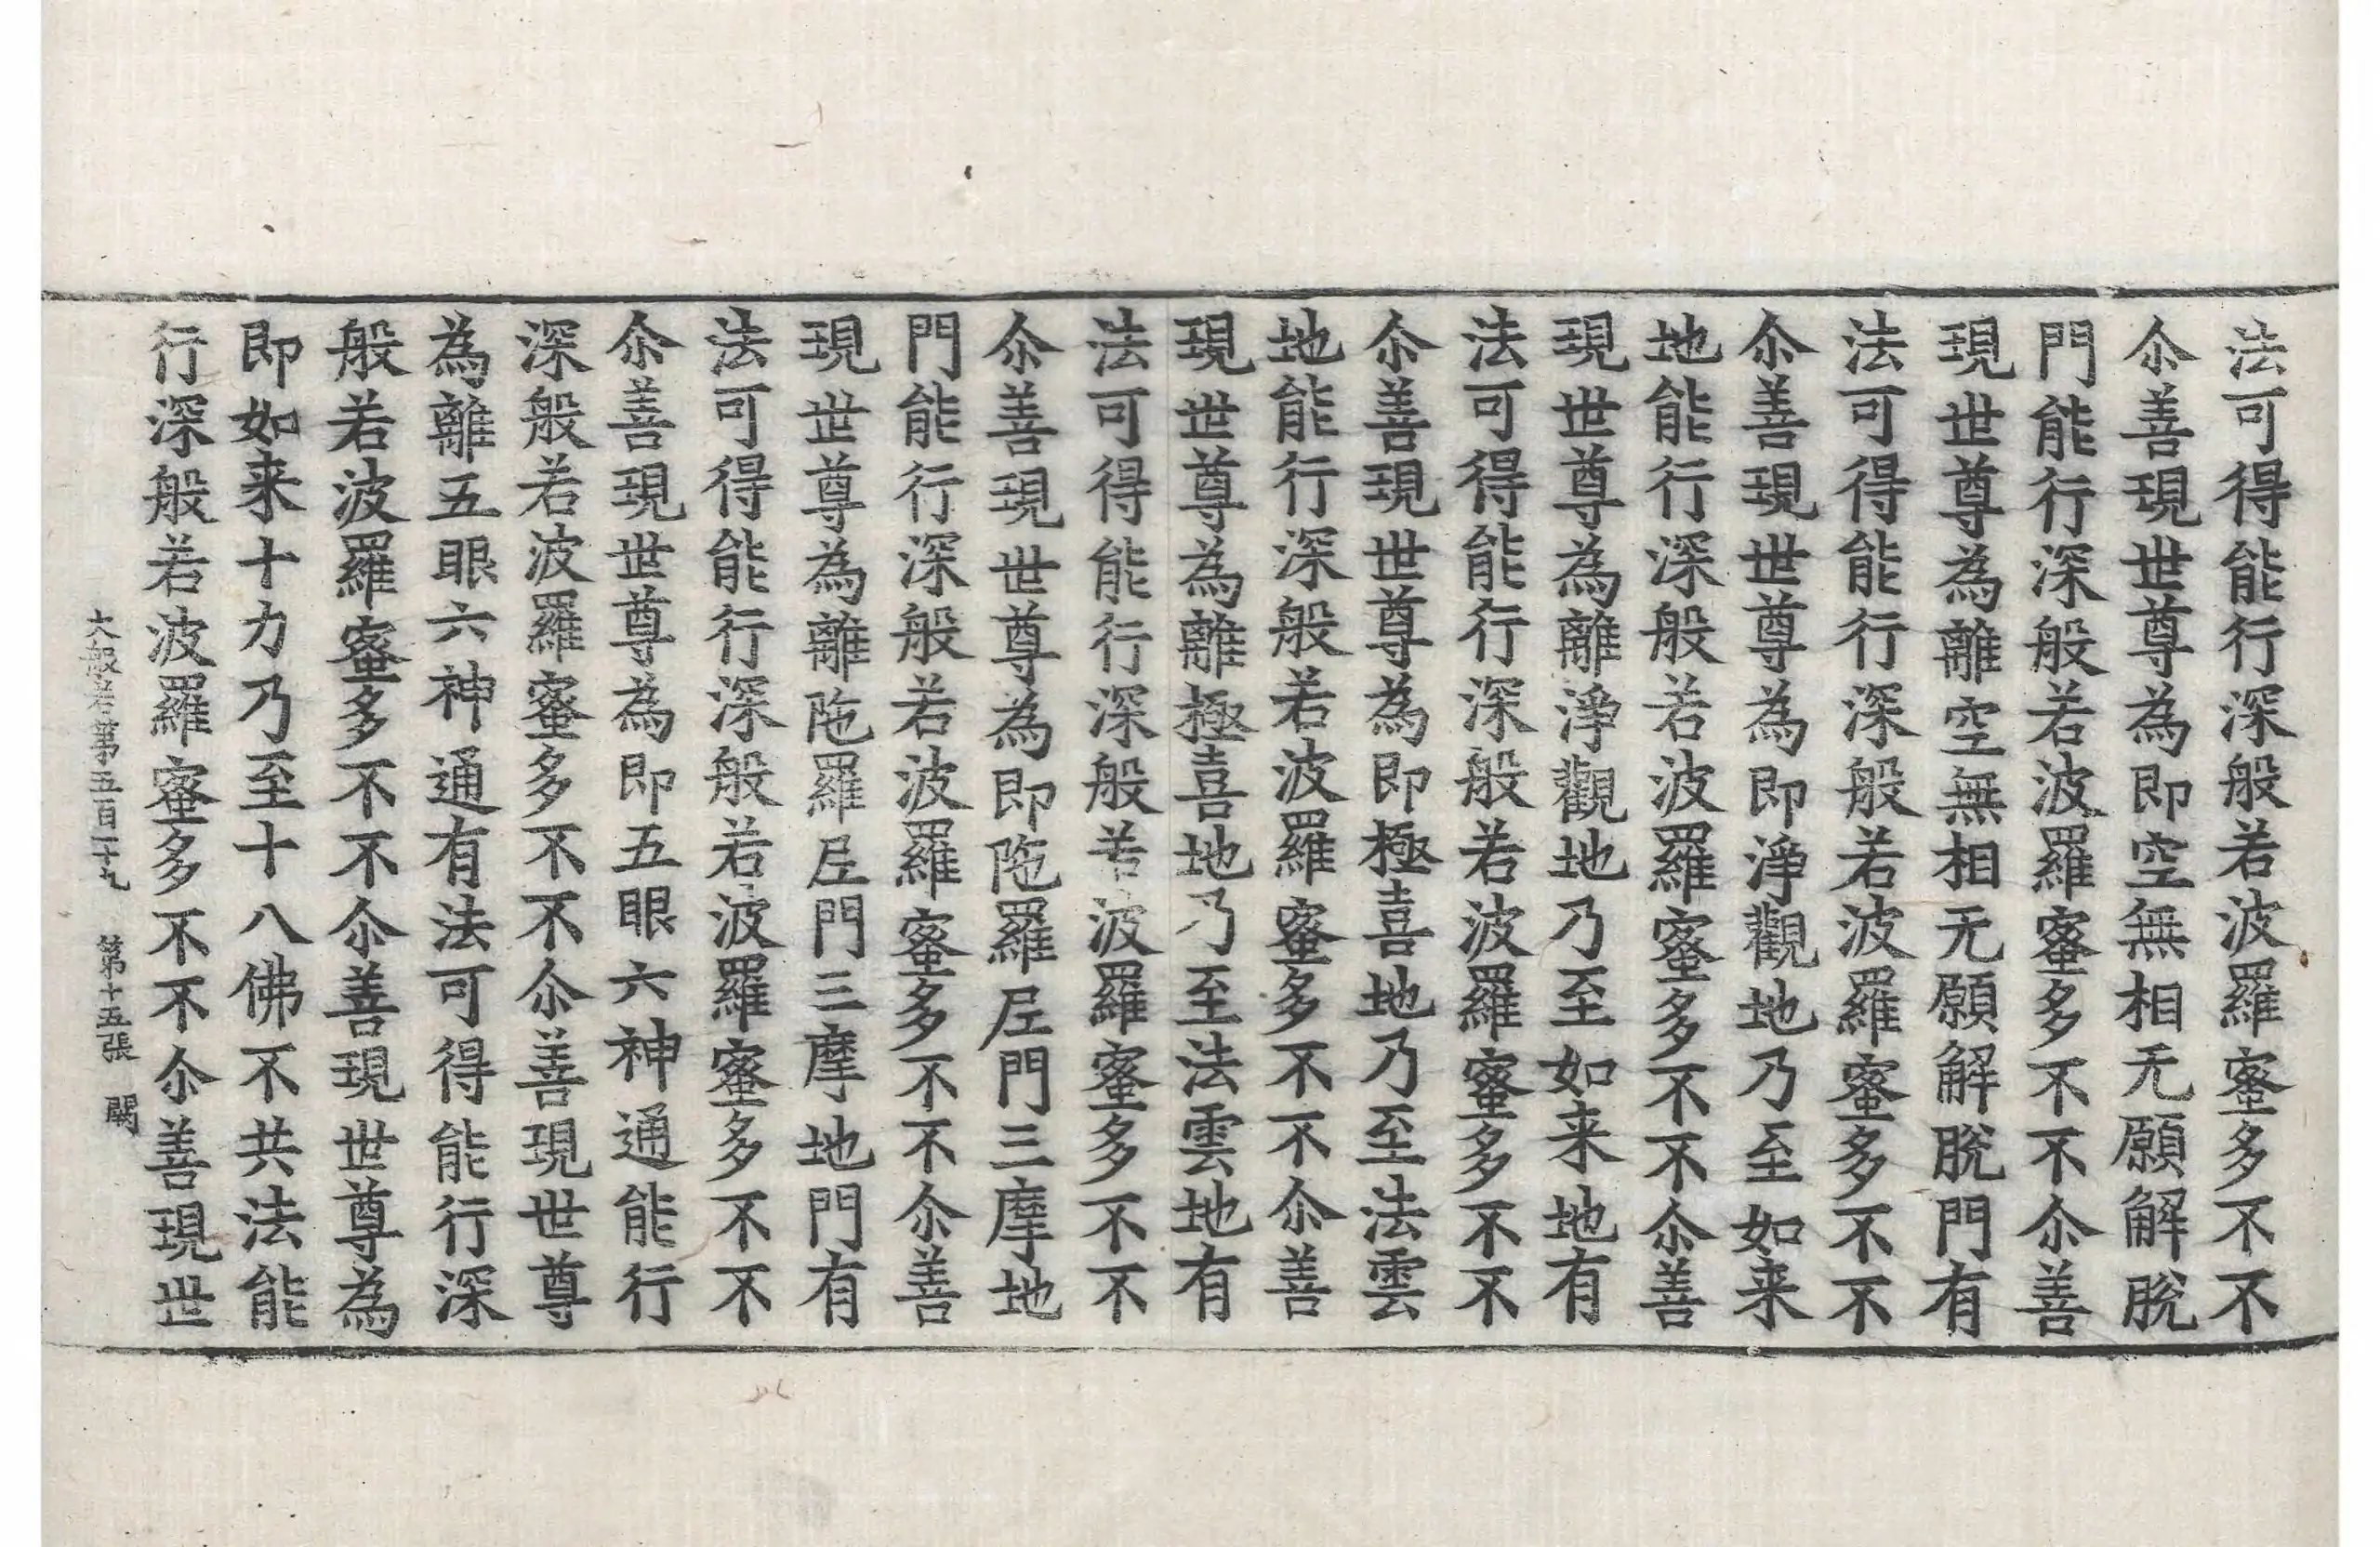 法可得能行深般若波羅蜜多不不
尒善現世尊為即空無相无願解脫
門能行深般若波羅蜜多不不尒善
現世尊為離空無相无願解脫門有
法可得能行深般若波羅蜜多不不
尒善現世尊為即淨觀地乃至如来
地能行深般若波羅蜜多不不尒善
現世尊為離淨觀地乃至如来地有
法可得能行深般若波羅蜜多不不
尒善現世尊為即極喜地乃至法雲
地能行深般若波羅蜜多不不尒善
現世尊為離極喜地乃至法雲地有
法可得能行深般若波羅蜜多不不
尒善現世尊為即陁羅尼門三摩地
門能行深般若波羅蜜多不不尒善
現世尊為離陁羅尼門三摩地門有
法可得能行深般若波羅蜜多不不
尒善現世尊為即五眼六神通能行
深般若波羅蜜多不不尒善現世尊
為離五眼六神通有法可得能行深
般若波羅蜜多不不尒善現世尊為
即如来十力乃至十八佛不共法能
行深般若波羅蜜多不不尒善現世
大般若第五百二十九 第十五張 闕